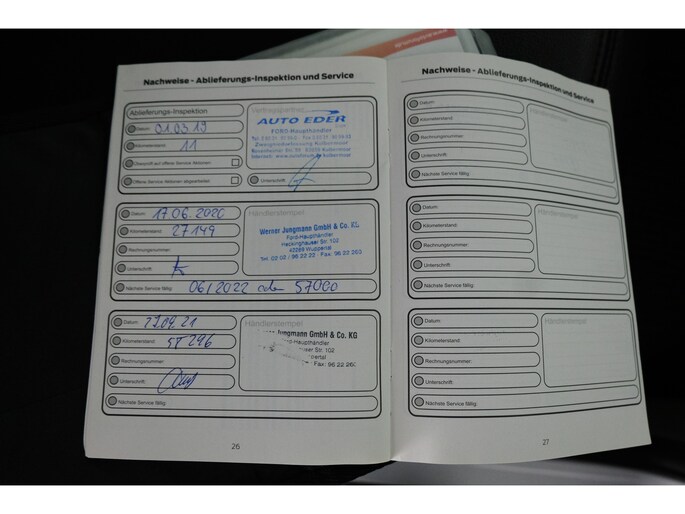 Nachweise - Ablieferungs-Inspektion und Service
Ablieferungs-Inspektion
Datum: 01.03.19
Kilometerstand: 11
Überprüft auf offene Service-Aktionen:
Offene Service-Aktionen abgearbeitet:
Vertragspartner
AUTO EDER
FORD-Haupthändler
Zweigniederlassung Kolbermoor
Rosenheimer Str.
83059 Kolbermoor
Unterschrift:
Datum: 17.06.2020
Kilometerstand: 27149
Rechnungsnummer:
Unterschrift:
Nächste Service fällig: 06/2022 oder 57000
Händlerstempel
Werner Jungmann GmbH & Co. KG
Ford-Haupthändler
Heckinghauser Str. 102
42289 Wuppertal
Tel. 02 02 / 96 22 22 - Fax: 96 22 263
Datum: 27.09.21
Kilometerstand: 57296
Rechnungsnummer:
Unterschrift:
Nächste Service fällig:
Händlerstempel
Jungmann GmbH & Co. KG
Ford-Haupthändler
hauser Str. 102
pertal
Fax: 96 22 26
26
Nachweise - Ablieferungs-Inspektion und Service
Datum:
Kilometerstand:
Rechnungsnummer:
Unterschrift:
Nächste Service fällig:
Händlerstempel
Datum:
Kilometerstand:
Rechnungsnummer:
Unterschrift:
Nächste Service fällig:
Händlerstempel
Datum:
Kilometerstand:
Rechnungsnummer:
Unterschrift:
Nächste Service fällig:
Händlerstempel
27